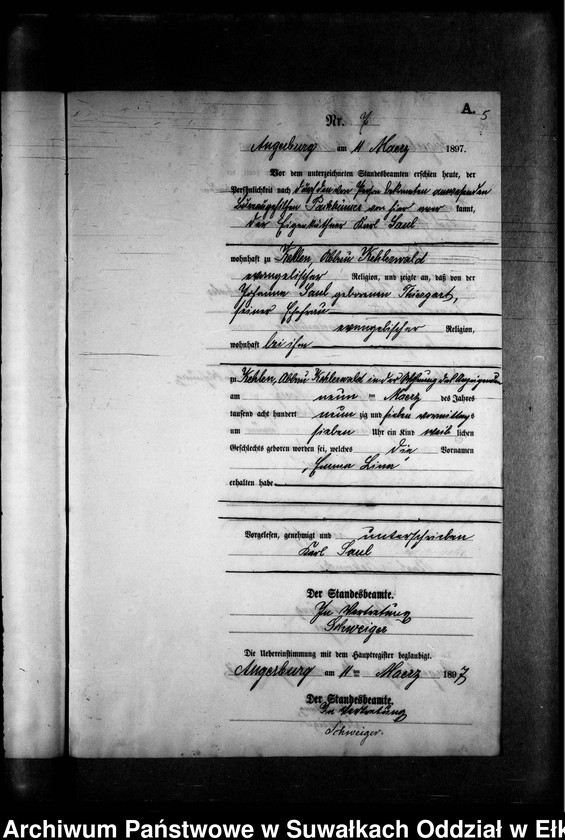 A.
5
Nr. 7
Angerburg am 11 Maerz 1897.
Vor dem unterzeichneten Standesbeamten erschien heute, der
Persönlichkeit nach durch den von Person bekannten anwesenden
von hier kannt,
der Eigenkäthner Karl Saul
wohnhaft zu Kehlen, Abbau Kehlerwald
evangelischer Religion, und zeigte an, daß von der
Johanna Saul geborenen Thiergart,
seiner Ehefrau
evangelischer Religion,
wohnhaft bei ihm
zu Kehlen, Abbau Kehlerwald in der Wohnung des Anzeigenden
am neun ten Maerz des Jahres
tausend acht hundert neun zig und sieben vormittags
um sieben Uhr ein Kind weib lichen
Geschlechts geboren worden sei, welches die Vornamen
„Emma Lina“
erhalten habe
Vorgelesen, genehmigt und unterschrieben
Karl Saul
Der Standesbeamte.
In Vertretung
Schweiger
Die Uebereinstimmung mit dem Hauptregister beglaubigt.
Angerburg am 11ten Maerz 1897
Der Standesbeamte.
In Vertretung
Schweiger.
Archiwum Państwowe w Suwałkach Oddział w Ełk